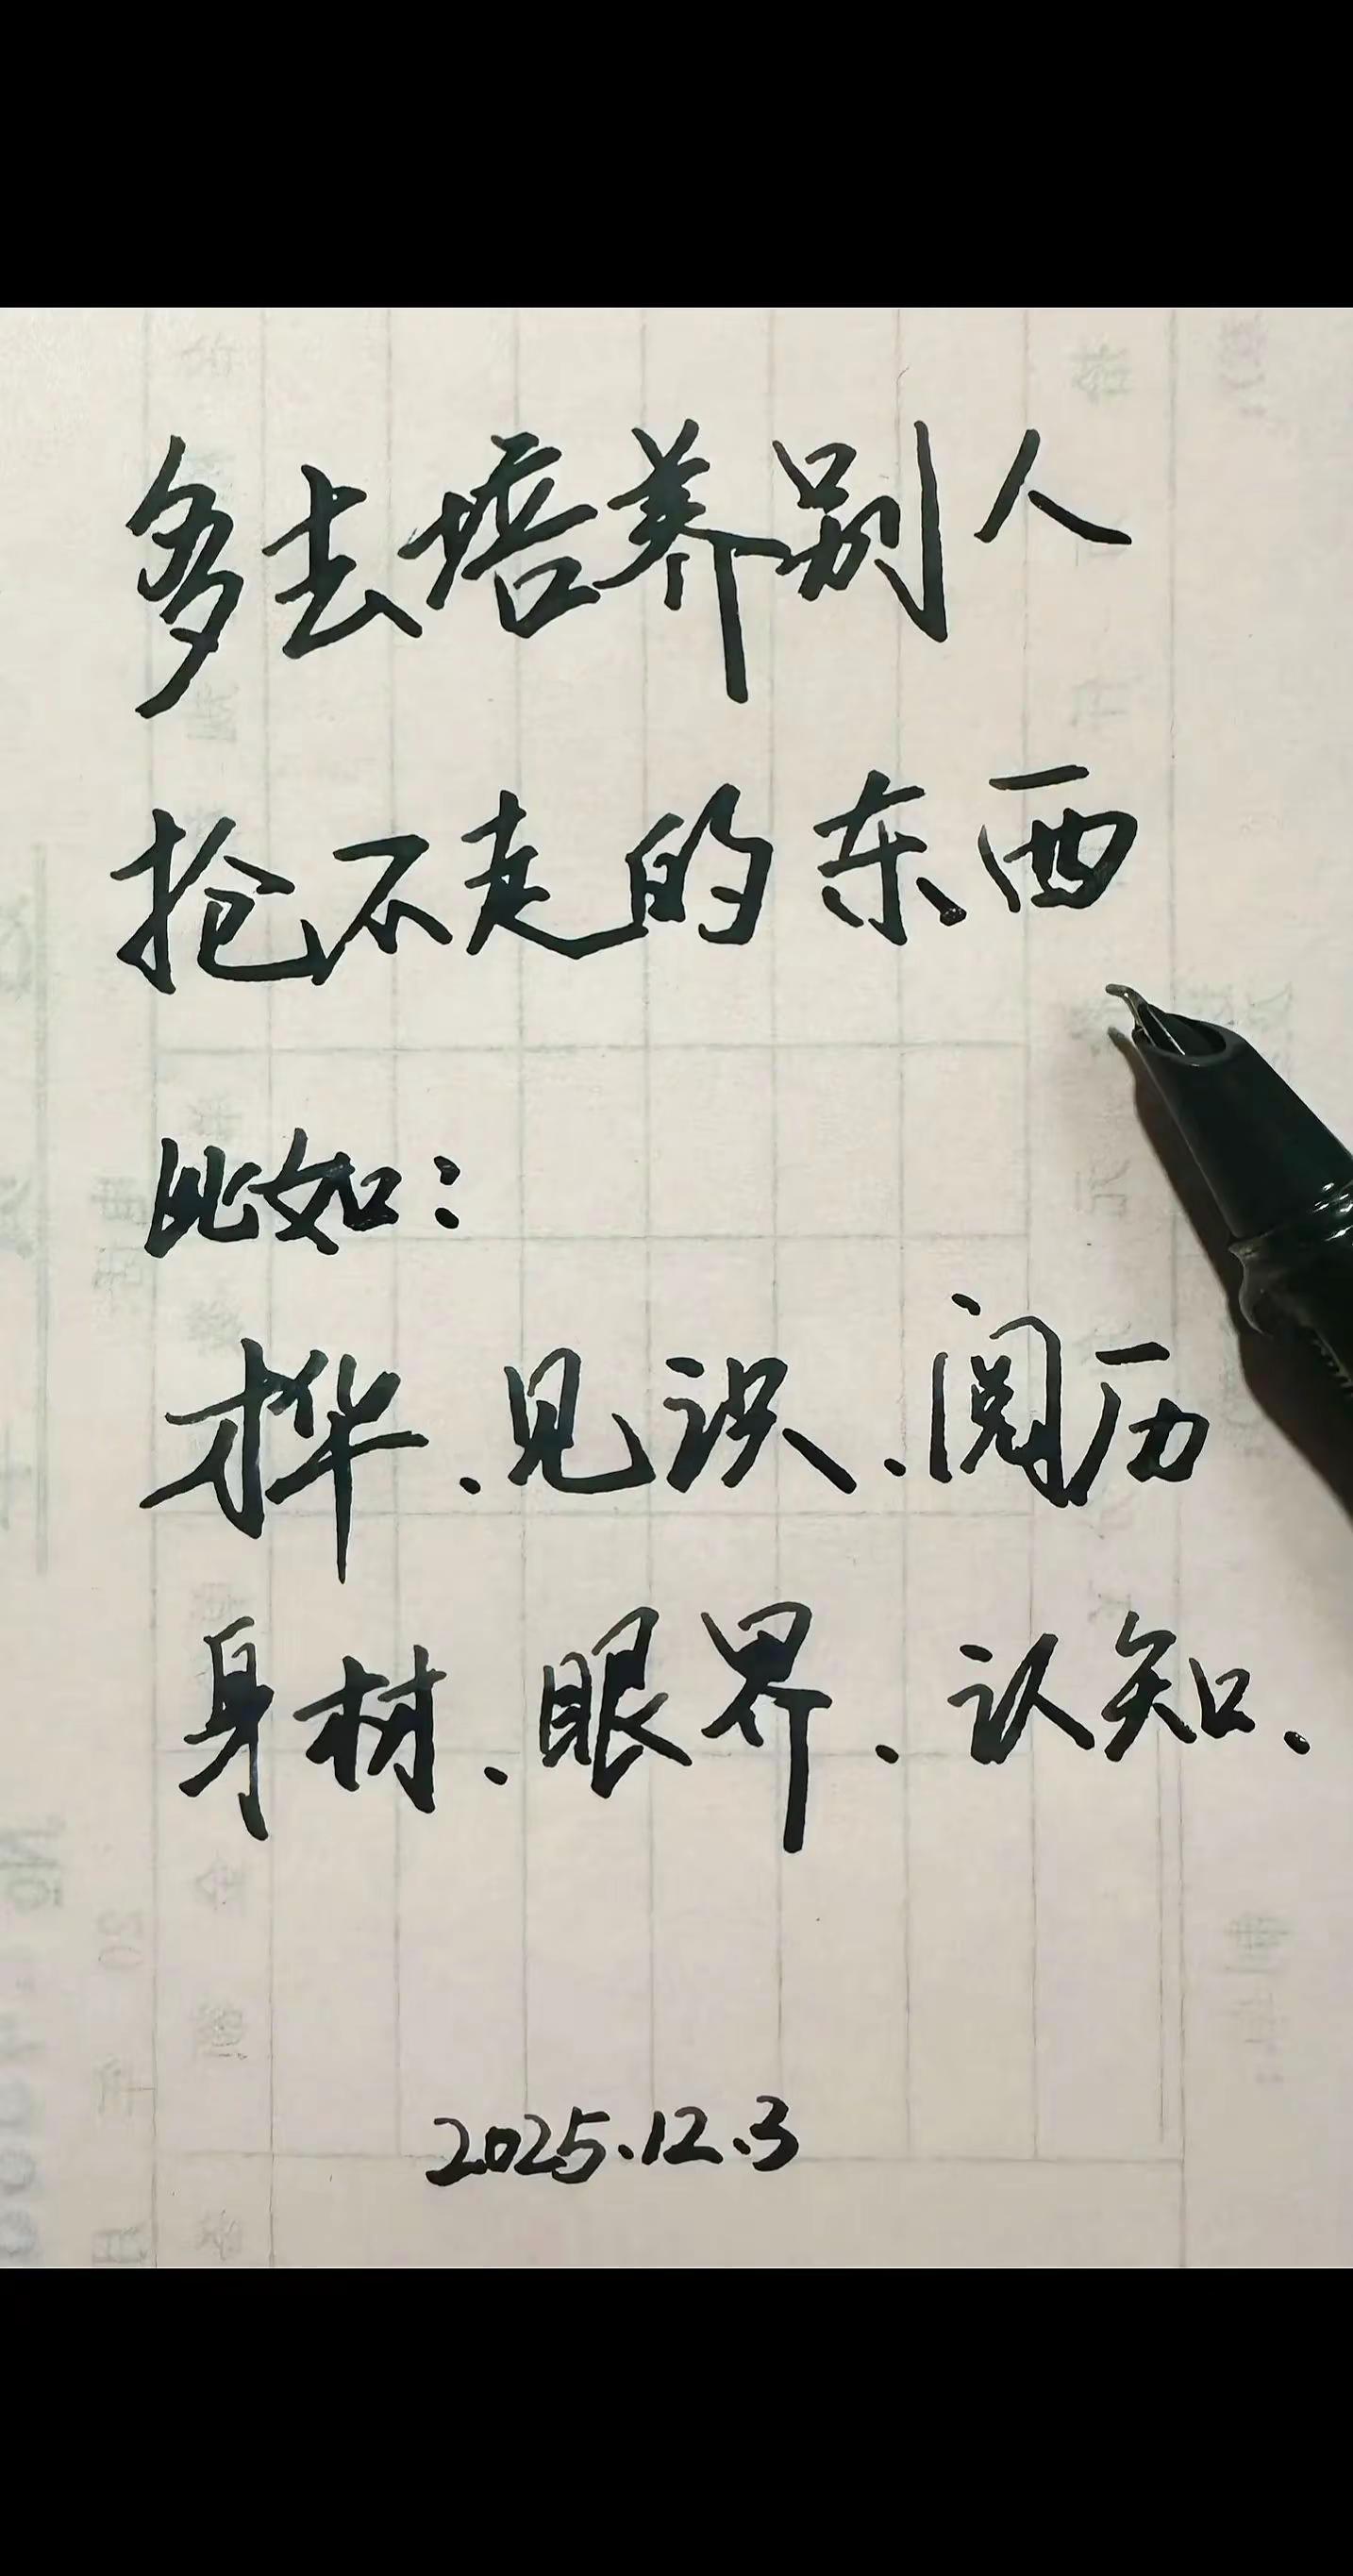 多去培养别人
抢不走的东西
比如：
才华、见识、阅历
身材、眼界、认知、
2025.12.3